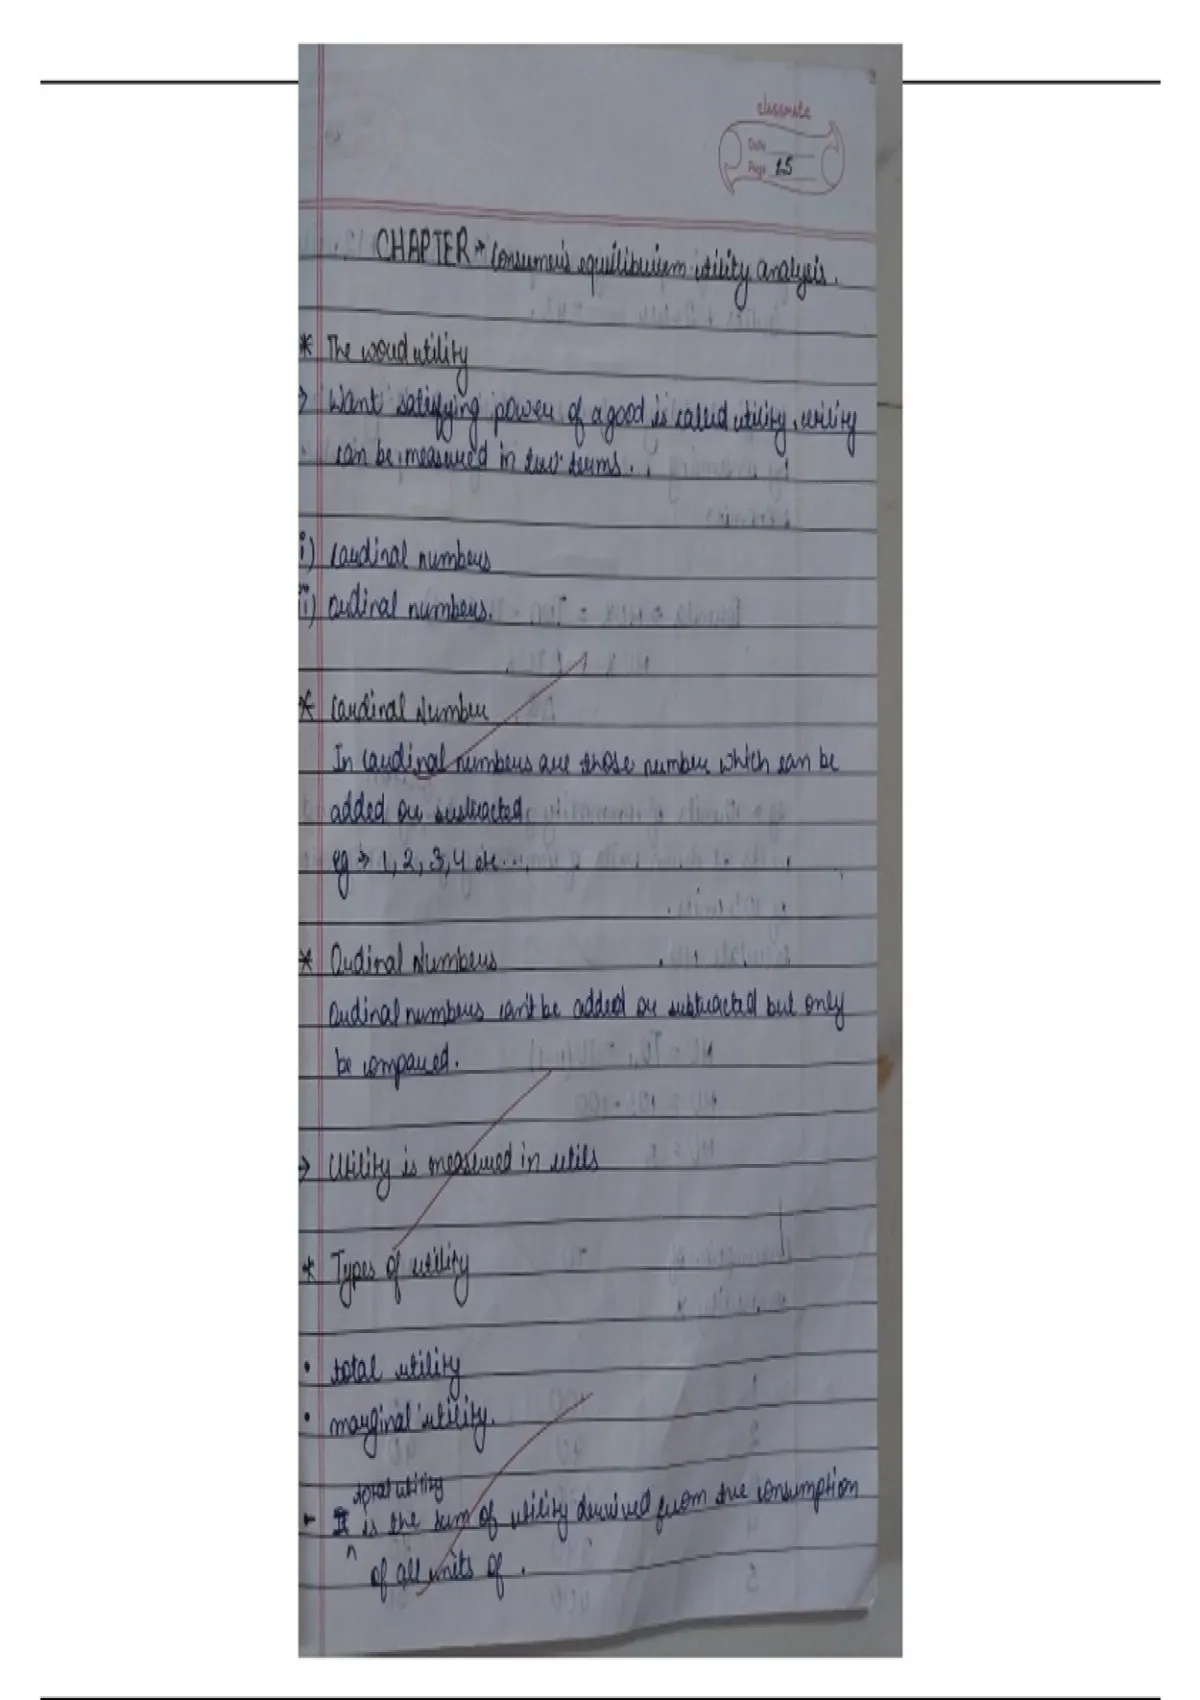 classmate
Date
Page 15
CHAPTER → Consumer's equilibrium utility analysis.
* The word utility
> Want satisfying power of a good is called utility, utility
can be measured in two terms.
i) Cardinal numbers
ii) ordinal numbers.
* Cardinal Number
In Cardinal numbers are those number which can be
added or sustracted.
eg → 1, 2, 3, 4 etc...
* Ordinal Numbers
Ordinal numbers can't be added or subtracted but only
be compared.
> Utility is measured in utils
* Types of utility
• total utility
• marginal utility.
total utility
- It is the sum of utility derived from the consumption
of all units of .